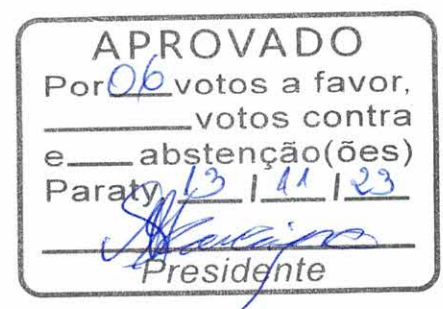 APROVADO
Por 06 votos a favor,
votos contra
e abstenção(ões)
Paraty 13 / 11 / 23
Presidente